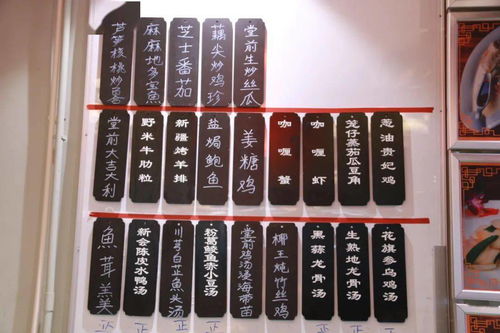 芦笋核桃炒
麻麻地多寶魚
芝士番茄
藕尖炒鸡珍
堂前生炒丝瓜
堂前大吉大利
野米牛肋粒
新疆烤羊排
盐焗鲍鱼
姜糖鸡
咖喱蟹
咖喱虾
笼仔蒸茄瓜豆角
葱油贵妃鸡
魚茸羹
新会陈皮水鸭汤
川芎白芷魚头汤
粉葛鲮鱼赤小豆汤
堂前鸡汤浸海带苗
椰王炖竹丝鸡
黑蒜龙骨汤
生熟地龙骨汤
花旗参乌鸡汤